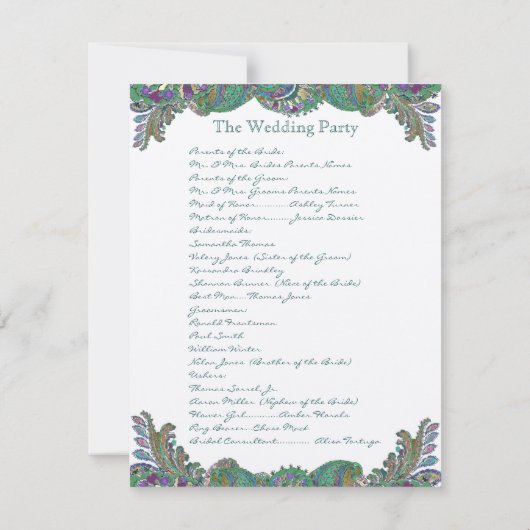 The Wedding Party
Parents of the Bride:
Mr. & Mrs. Brides Parents Names
Parents of the Groom:
Mr. & Mrs. Grooms Parents Names
Maid of Honor...........Ashley Turner
Matron of Honor........Jessica Dossier
Bridesmaids:
Samantha Thomas
Valery Jones (Sister of the Groom)
Kassandra Brinkley
Shannon Brunner (Niece of the Bride)
Best Man....Thomas Jones
Groomsmen:
Ronald Frantsman
Paul Smith
William Winter
Nolan Jones (Brother of the Bride)
Ushers:
Thomas Sorrel, Jr.
Aaron Miller (Nephew of the Bride)
Flower Girl...........Amber Harala
Ring Bearer...Chase Mack
Bridal Consultant........... Alisa Tortugo